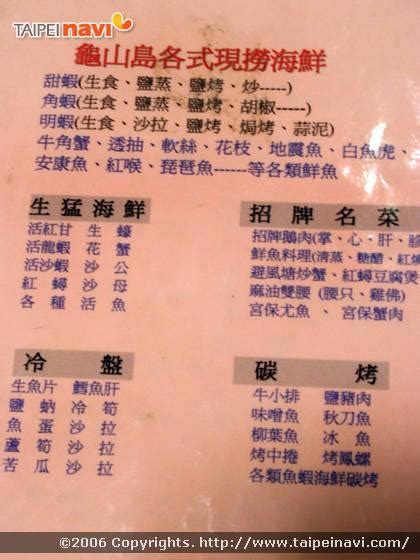 TAIPEInavi
龜山島各式現撈海鮮
甜蝦(生食、鹽蒸、鹽烤、炒-----)
角蝦(生食、鹽蒸、鹽烤、胡椒-----)
明蝦(生食、沙拉、鹽烤、焗烤、蒜泥)
牛角蟹、透抽、軟絲、花枝、地震魚、白魚虎、
安康魚、紅喉、琵琶魚------等各類鮮魚
生猛海鮮
活紅甘 生蠔
活龍蝦 花蟹
活沙蝦 沙公
紅蟳 沙母
各種活魚
招牌名菜
招牌鵝肉(掌、心、肝、
鮮魚料理(清蒸、糖醋、紅
避風塘炒蟹、紅蟳豆腐煲
麻油雙腰 (腰只、雞佛)
宮保尤魚 、宮保蟹肉
冷盤
生魚片 鱈魚肝
鹽蚋冷筍
魚蛋沙拉
蘆筍沙拉
苦瓜沙拉
碳烤
牛小排 鹽豬肉
味噌魚 秋刀魚
柳葉魚 冰魚
烤中捲 烤鳳螺
各類魚蝦海鮮碳烤
©2006 Copyrights. http://www.taipeinavi.com/